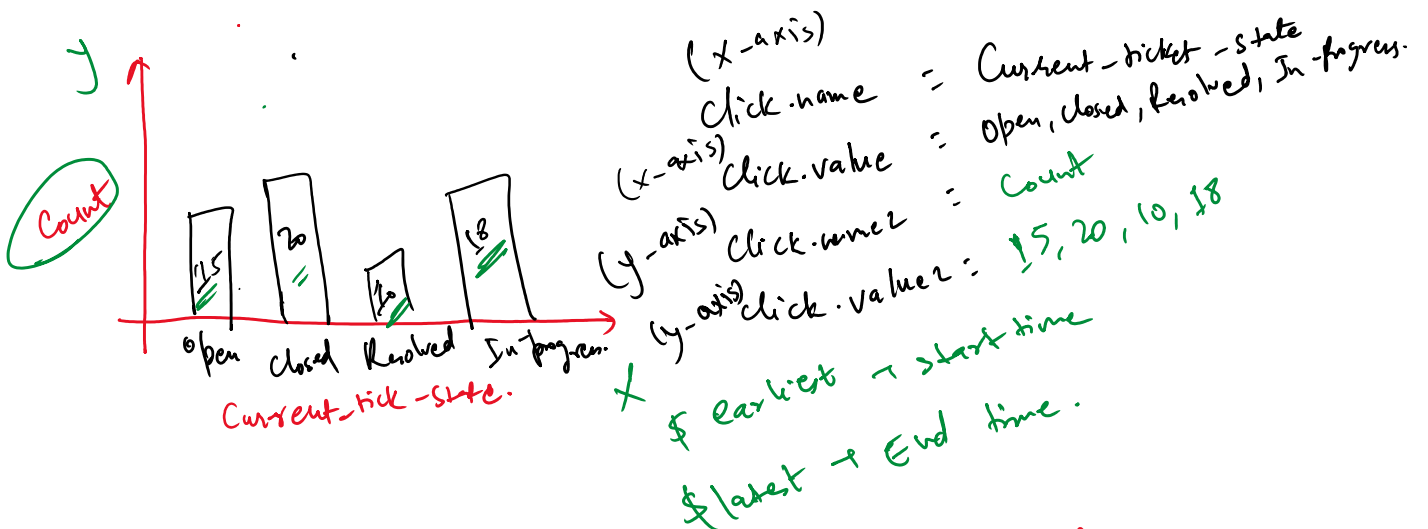 y
Count
15
20
10
18
Open Closed Resolved In-progress.
Current_tick-state.
X
(x-axis)
Click.name = Current_ticket-state
(x-axis) Click.value = Open, Closed, Resolved, In-Progress.
(y-axis) Click.name2 = Count
(y-axis) Click.value2 = 15, 20, 10, 18
$ earliest → start time
$ latest → End time.